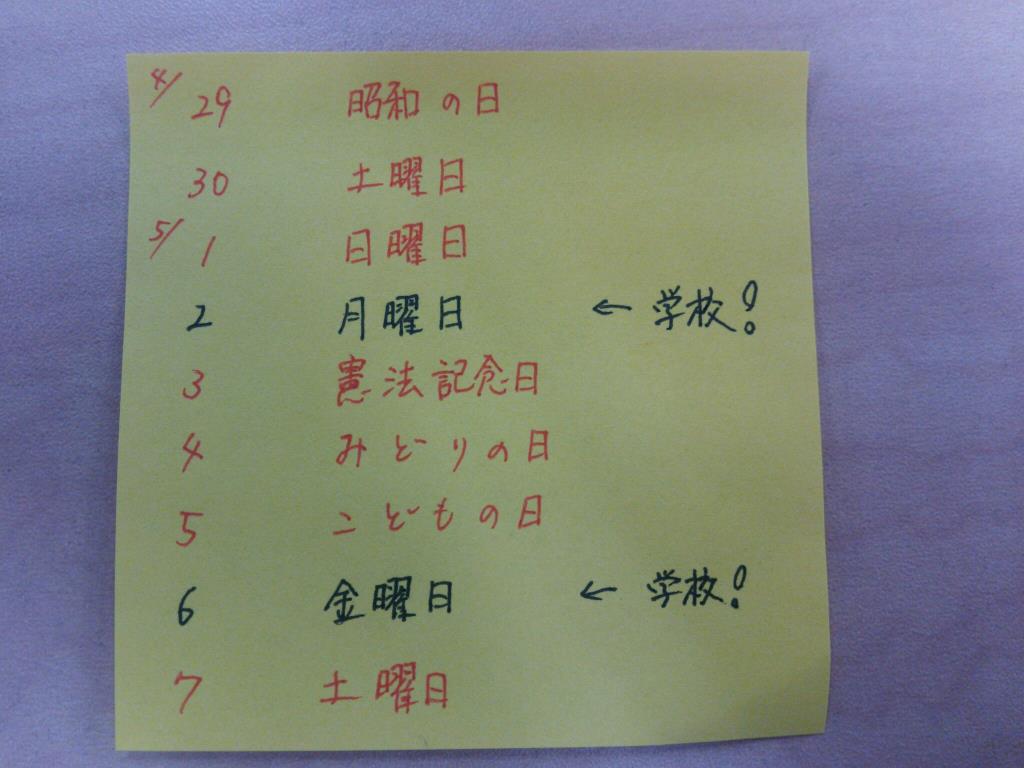 4/29 昭和の日
30 土曜日
5/1 日曜日
2 月曜日 ← 学校!
3 憲法記念日
4 みどりの日
5 こどもの日
6 金曜日 ← 学校!
7 土曜日